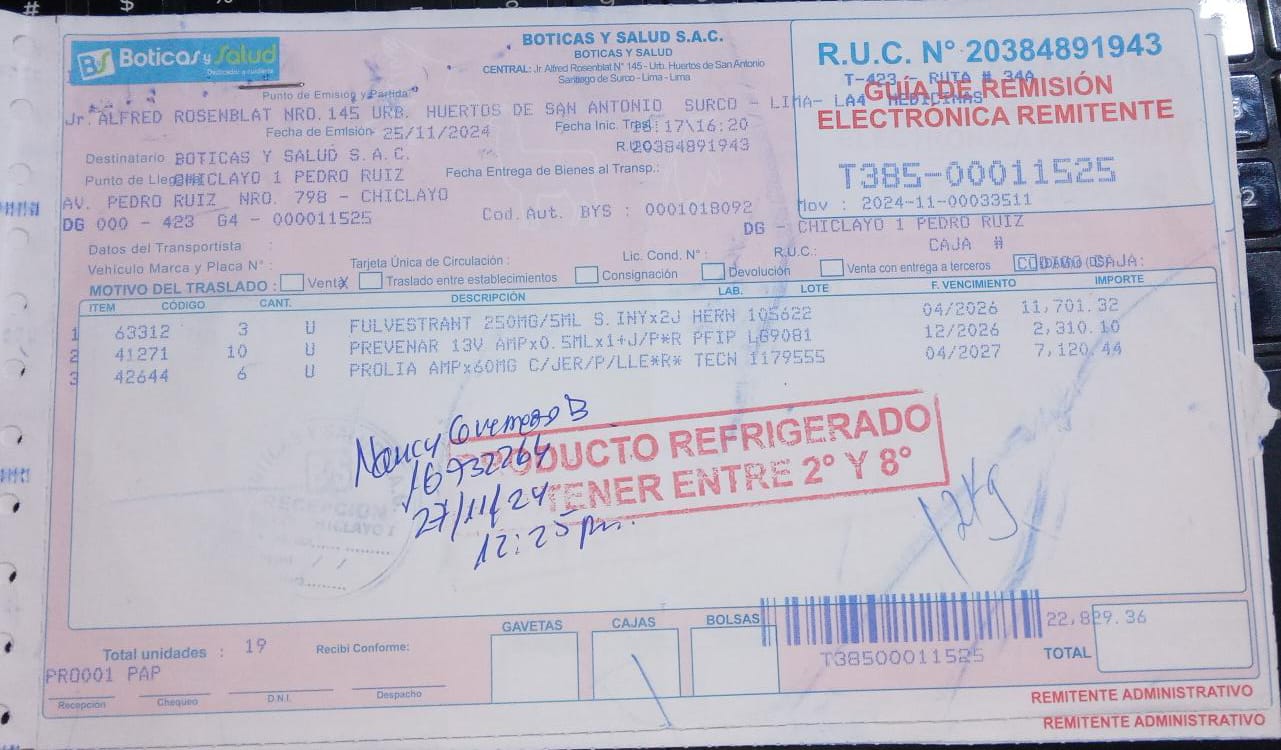 Boticas y Salud
Dedicados a cuidarte
BOTICAS Y SALUD S.A.C.
BOTICAS Y SALUD
CENTRAL: Jr. Alfred Rosenblat N° 145 - Urb. Huertos de San Antonio
Santiago de Surco - Lima - Lima
R.U.C. N° 20384891943
T-423 - RUTA # 34A
GUÍA DE REMISIÓN
ELECTRÓNICA REMITENTE
T385-00011525
Mov : 2024-11-00033511
Punto de Emisión y Partida
Jr. ALFRED ROSENBLAT NRO.145 URB. HUERTOS DE SAN ANTONIO SURCO - LIMA- LA4 MEDICINAS
Fecha de Emisión 25/11/2024
Fecha Inic. :17\16:20
Destinatario BOTICAS Y SALUD S.A.C.
R.U.C. 20384891943
Punto de Llegada CHICLAYO 1 PEDRO RUIZ
Fecha Entrega de Bienes al Transp.:
AV. PEDRO RUIZ NRO. 798 - CHICLAYO
DG 000 - 423 G4 - 000011525
Cod. Aut. BYS : 0001018092
DG - CHICLAYO 1 PEDRO RUIZ
Datos del Transportista :
CAJA #
Vehículo Marca y Placa N° :
Tarjeta Única de Circulación :
Lic. Cond. N° :
R.U.C.:
MOTIVO DEL TRASLADO : Venta X Traslado entre establecimientos Consignación Devolución Venta con entrega a terceros CAJA:
ITEM CÓDIGO CANT. DESCRIPCIÓN LAB. LOTE F. VENCIMIENTO IMPORTE
1 63312 3 U FULVESTRANT 250MG/5ML S.INYx2J HERN 105622 04/2026 11,701.32
2 41271 10 U PREVENAR 13V AMPx0.5MLx1+J/P*R PFIP LG9081 12/2026 2,310.10
3 42644 6 U PROLIA AMPx60MG C/JER/P/LLE*R* TECN 1179555 04/2027 7,120.44
PRODUCTO REFRIGERADO
TENER ENTRE 2° Y 8°
Nancy
16932264
27/11/24
12:25 pm.
12Kg
RECEPCION
CHICLAYO 1
GAVETAS
CAJAS
BOLSAS
T38500011525
22,829.36
TOTAL
Total unidades : 19
Recibí Conforme:
PR0001 PAP
Recepción
Chequeo
D.N.I.
Despacho
REMITENTE ADMINISTRATIVO
REMITENTE ADMINISTRATIVO